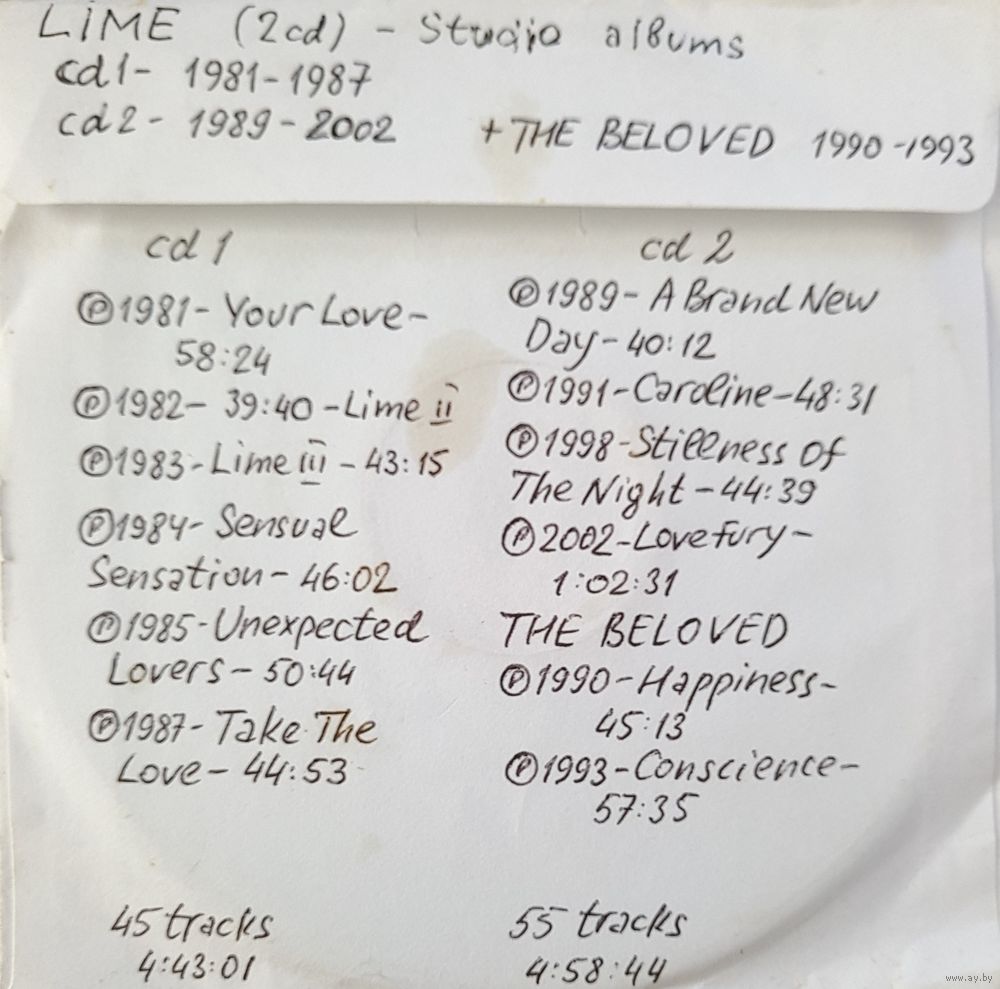 LiME (2cd) - Studio albums
cd1- 1981-1987
cd2- 1989-2002 + THE BELOVED 1990-1993
cd 1
℗1981- Your Love-
58:24
℗1982- 39:40 -Lime II
℗1983-Lime III - 43:15
℗1984- Sensual
Sensation- 46:02
℗1985-Unexpected
Lovers- 50:44
℗1987- Take The
Love- 44:53
45 tracks
4:43:01
cd 2
℗1989- A Brand New
Day- 40:12
℗1991-Caroline-48:31
℗1998-Stillness Of
The Night-44:39
℗2002-Lovefury-
1:02:31
THE BELOVED
℗1990-Happiness-
45:13
℗1993-Conscience-
57:35
55 tracks
4:58:44
www.ay.by